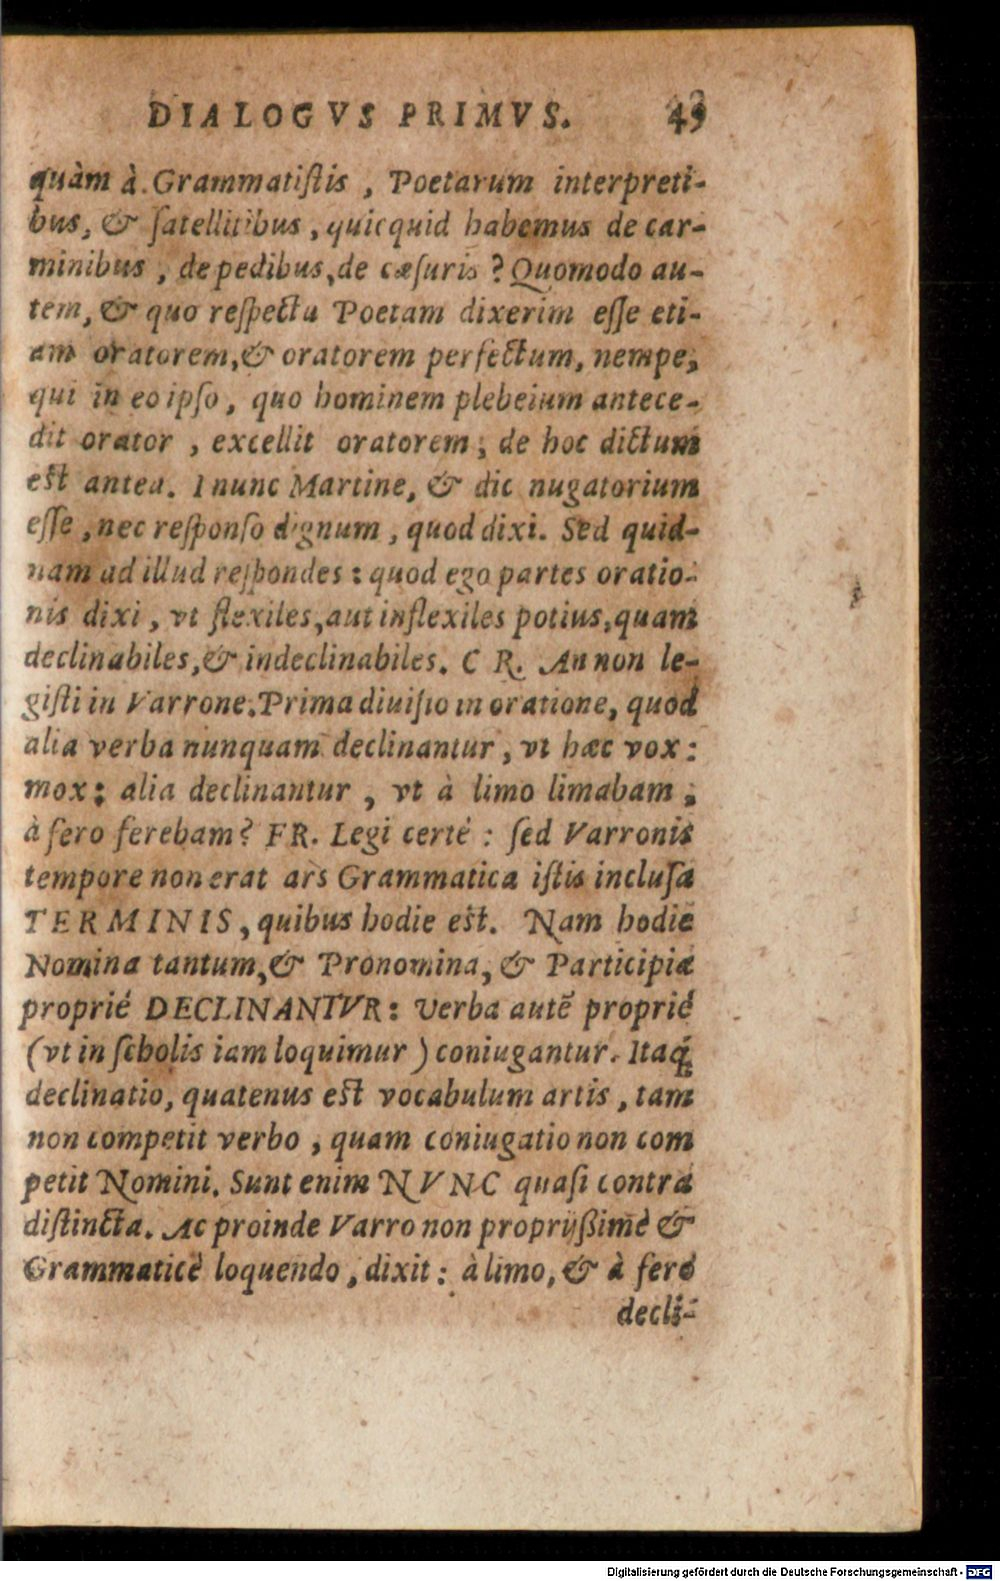 DIALOGVS PRIMVS. 43
quàm à Grammatiſtis, Poetarum interpreti-
bus, & ſatellitibus, quicquid habemus de car-
minibus, de pedibus, de cæſuris? Quomodo au-
tem, & quo reſpectu Poetam dixerim eſſe eti-
am oratorem, & oratorem perfectum, nempe,
qui in eo ipſo, quo hominem plebeium antece-
dit orator, excellit oratorem; de hoc dictum
est antea. I nunc Martine, & dic nugatorium
eſſe, nec reſponſo dignum, quod dixi. Sed quid-
nam ad illud reſpondes: quod ego partes oratio-
nis dixi, vt flexiles, aut inflexiles potius, quam
declinabiles, & indeclinabiles. CR. An non le-
giſti in Varrone. Prima diuiſio in oratione, quod
alia verba nunquam declinantur, vt hæc vox:
mox; alia declinantur, vt à limo limabam,
à fero ferebam? FR. Legi certè: ſed Varronis
tempore non erat ars Grammatica iſtis incluſa
TERMINIS, quibus hodie est. Nam hodie
Nomina tantum, & Pronomina, & Participia
propriè DECLINANTVR: Verba autẽ propriè
(vt in ſcholis iam loquimur) coniugantur. Itaq́;
declinatio, quatenus est vocabulum artis, tam
non competit verbo, quam coniugatio non com
petit Nomini. Sunt enim NVNC quaſi contra
diſtincta. Ac proinde Varro non proprijßimè &
Grammaticè loquendo, dixit: à limo, & à fero
decli-
Digitalisierung gefördert durch die Deutsche Forschungsgemeinschaft - DFG